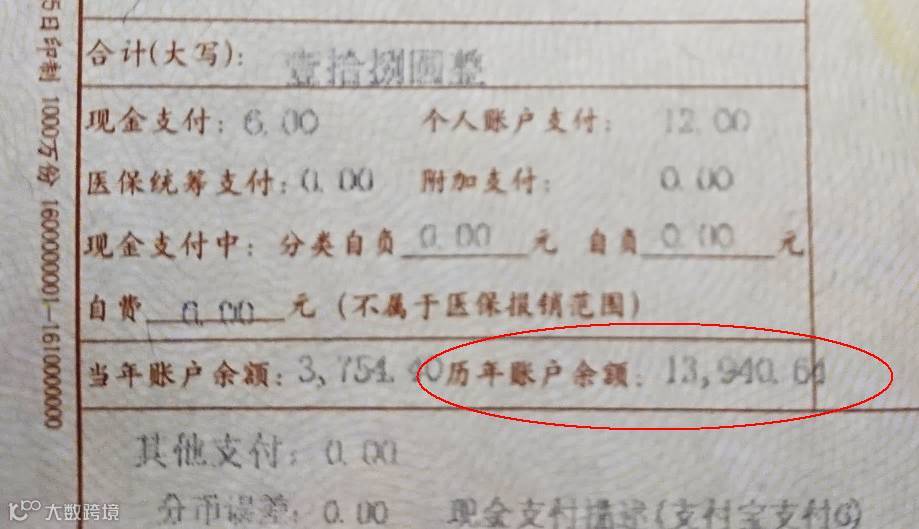 5日印制 1000万份 1600000001—1610000000
合计(大写): 壹拾捌圆整
现金支付: 6.00 个人账户支付: 12.00
医保统筹支付: 0.00 附加支付: 0.00
现金支付中: 分类自负 0.00 元 自负 0.00 元
自费 6.00 元 (不属于医保报销范围)
当年账户余额: 3,754.40 历年账户余额: 13,940.64
其他支付: 0.00
分币误差: 0.00 现金支付描述(支付宝支付6)
大数跨境